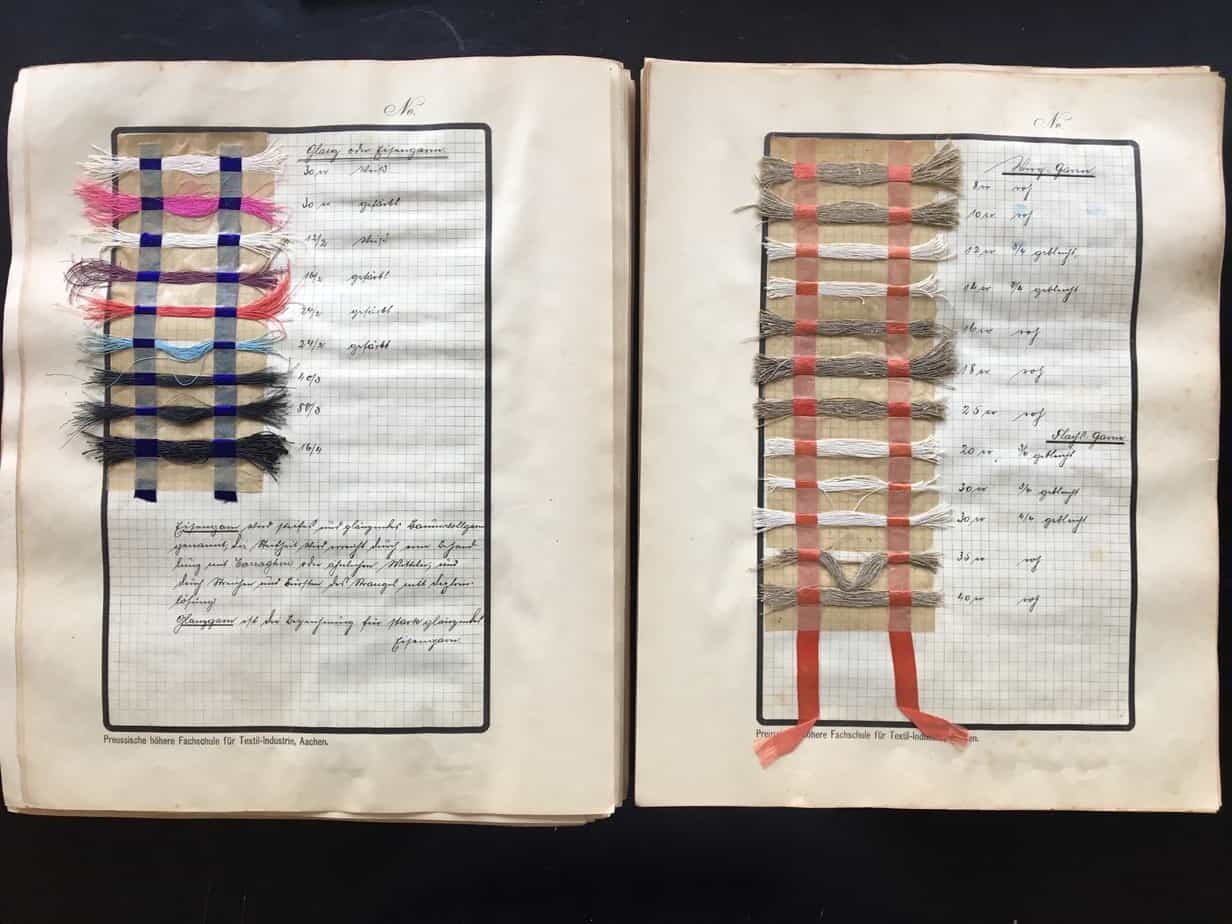 No.
Glanz oder Eisengarn
30 er weiß
30 er gefärbt
12/2 weiß
16/2 gefärbt
24/2 gefärbt
24/2 gefärbt
40/3
50/3
16/4
Eisengarn wird steifes und glänzendes Baumwollgarn
genannt, die Steifheit wird erreicht durch eine Behand
lung mit Carragheen oder ähnlichen Mitteln, und
durch Streichen und Bürsten des Strangel mitt
lösung
Glanzgarn ist die Bezeichnung für stark glänzendes
Eisengarn
Preussische höhere Fachschule für Textil-Industrie, Aachen.
No.
Werg-Garn
8 er roh
10 er roh
12 er 3/4 gebleicht.
14 er 3/4 gebleicht
16 er roh
18 er roh
25 er roh
Flachs Garn
20 er gebleicht
30 er 3/4 gebleicht
30 er 4/4 gebleicht
35 er roh
40 er roh
höhere Fachschule für Textil-